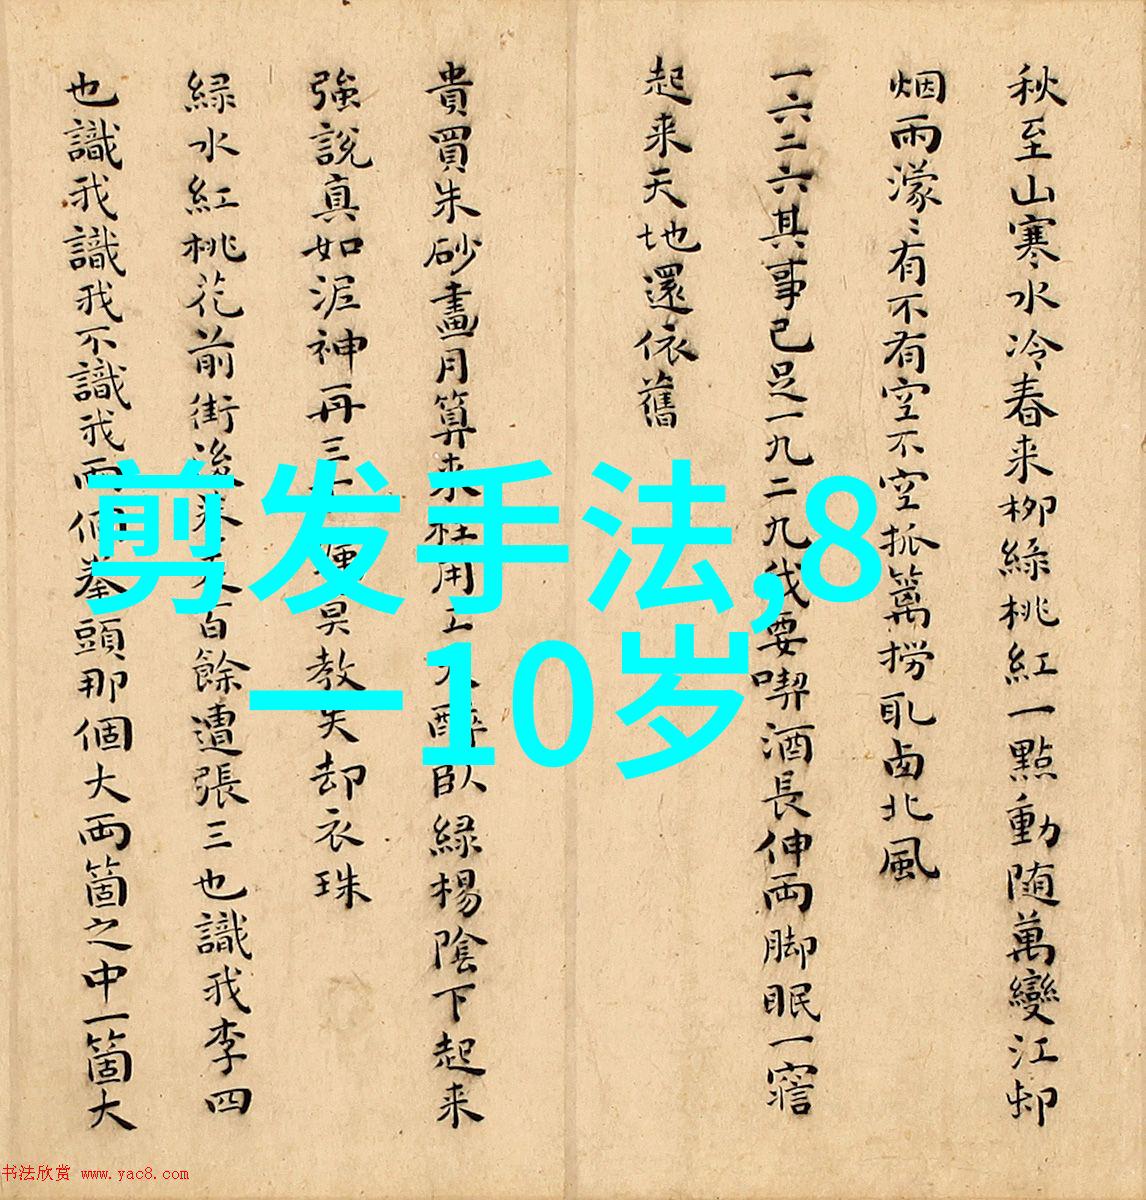 秋至山寒水冷春来柳緑桃紅一點動随萬變江邨
烟雨濛〻有不有空不空抓篱捞取西北風
一六二六其事已足一九二九我要喫酒長伸両脚眠一寤
起来天地還依舊
貴買朱砂畫月算来枉用工夫醉臥緑楊陰下起来
強說真如泥神再三莫教失却衣珠
緑水紅桃花前街後百餘遭張三也識我李四
也識我識我不識我両個拳頭那個大両箇之中一箇大
剪发手法,8
一10岁
书法欣赏 www.yac8.com